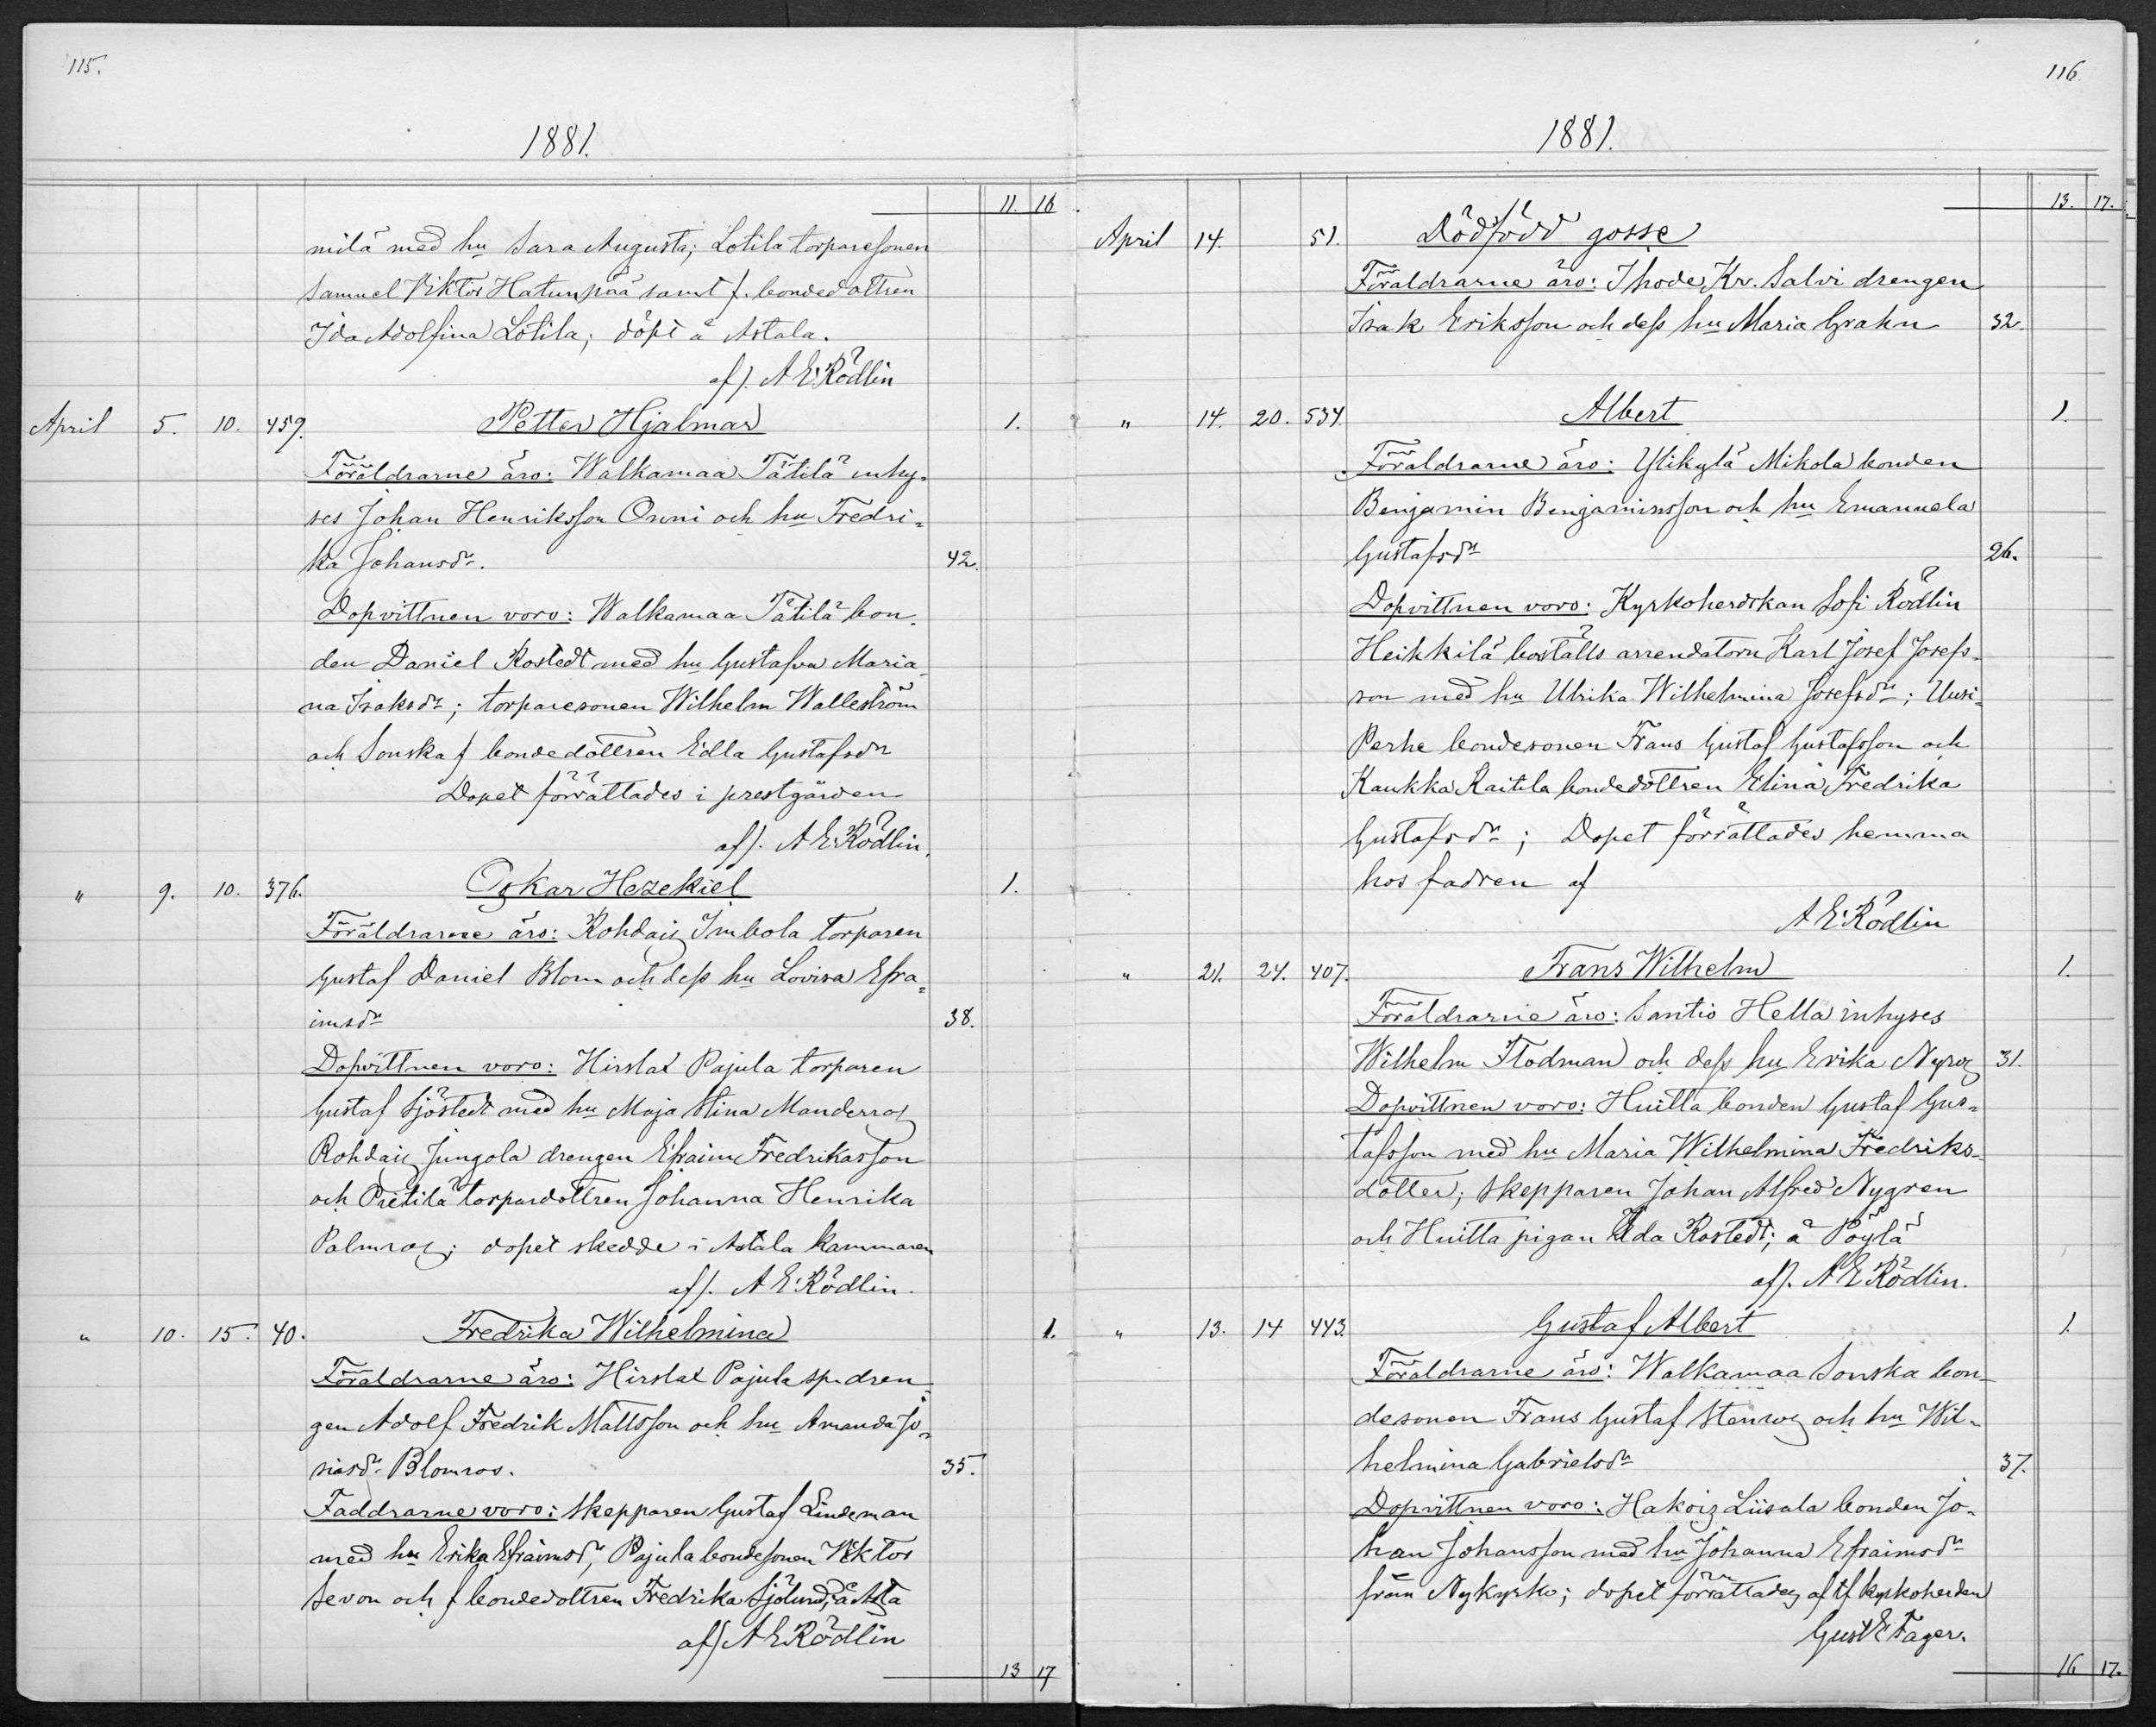 115.
1881.
11. 16
milä med hu Sara Augusta; Lotila torparesonen
Samuel Viktor Hatunpää samt f. bondedottren
Ida Adolfina Lotila; döpt å Astala.
af). A E Rödlin
April 5. 10. 459. Petter Hjalmar 1.
Föräldrarne äro: Walkamaa Tätilä inhy-
ses Johan Henriksson Onni och hu Fredri-
ka Johansdr. 42.
Dopvittnen voro: Walkamaa Tätilä bon-
den Daniel Rostedt med hu Gustafva Maria
na Isaksdr; torparesonen Wilhelm Wallström
och Sonska f bondedottren Edla Gustafsdr
Dopet förrättades i prestgården
af). A E Rödlin.
" 9. 10. 376. Oskar Hezekiel 1.
Föräldrarne äro: Rohdaiz Imbola torparen
Gustaf Daniel Blom och dess hu Lovisa Efra-
imsdr 38.
Dopvittnen voro: Hirslax Pajula torparen
Gustaf Sjöstedt med hu Maja Stina Manderroz
Rohdaiz Jungola drengen Efraim Fredriksson
och Prétilä torpardottren Johanna Henrika
Palmroz; dopet skedde i Astala kammaren
af). A E Rödlin.
" 10. 15. 40. Fredrika Wilhelmina 1.
Föräldrarne äro: Hirslax Pajula sp. dren-
gen Adolf Fredrik Mattsson och hu Amanda Jo-
siasdr Blomros. 35.
Faddrarne voro: skepparen Gustaf Lindeman
med hu Erika Efraimsdr, Pajula bondesonen Viktor
Sevon och f bondedottren Fredrika Sjölund;
af) A E Rödlin
13 17
116.
1881.
13. 17.
April 14. 51. Dödfödd gosse
Föräldrarne äro: Ihode Kr. Salvi drengen
Isak Eriksson och dess hu Maria Grahn 32.
" 14. 20. 534. Albert 1.
Föräldrarne äro: Ylikylä Mikola bonden
Benjamin Benjaminsson och hu Emanuela
Gustafsdr 26.
Dopvittnen voro: Kyrkoherdskan Sofi Rödlin
Heikkilä boställs arrendatorn Karl Josef Josefs-
son med hu Ulrika Wilhelmina Josefsdr; Uusi-
Perhe bondesonen Frans Gustaf Gustafsson och
Kaukka Kaitila bondedottren Elina Fredrika
Gustafsdr; Dopet förrättades hemma
hos fadren af
A E Rödlin
" 21. 24. 407. Frans Wilhelm 1.
Föräldrarne äro: Santio Hella inhyses
Wilhelm Flodman och dess hu Erika Nyroz 31.
Dopvittnen voro: Huitta bonden Gustaf Gus-
tafsson med hu Maria Wilhelmina Fredriks-
dotter; skepparen Johan Alfred Nygren
och Huitta pigan Ida Rostedt; å Pöylä
af). A E Rödlin.
" 13. 14 443. Gustaf Albert 1.
Föräldrarne äro: Walkamaa Sonska bon-
desonen Frans Gustaf Stenroz och hu Wil-
helmina Gabrielsdr 37.
Dopvittnen voro: Hakoiz Liisala bonden Jo-
han Johansson med hu Johanna Efraimsdr
från Nykyrko; dopet förrättades af tf kyrkoherden
Gust E Fager.
16 17.